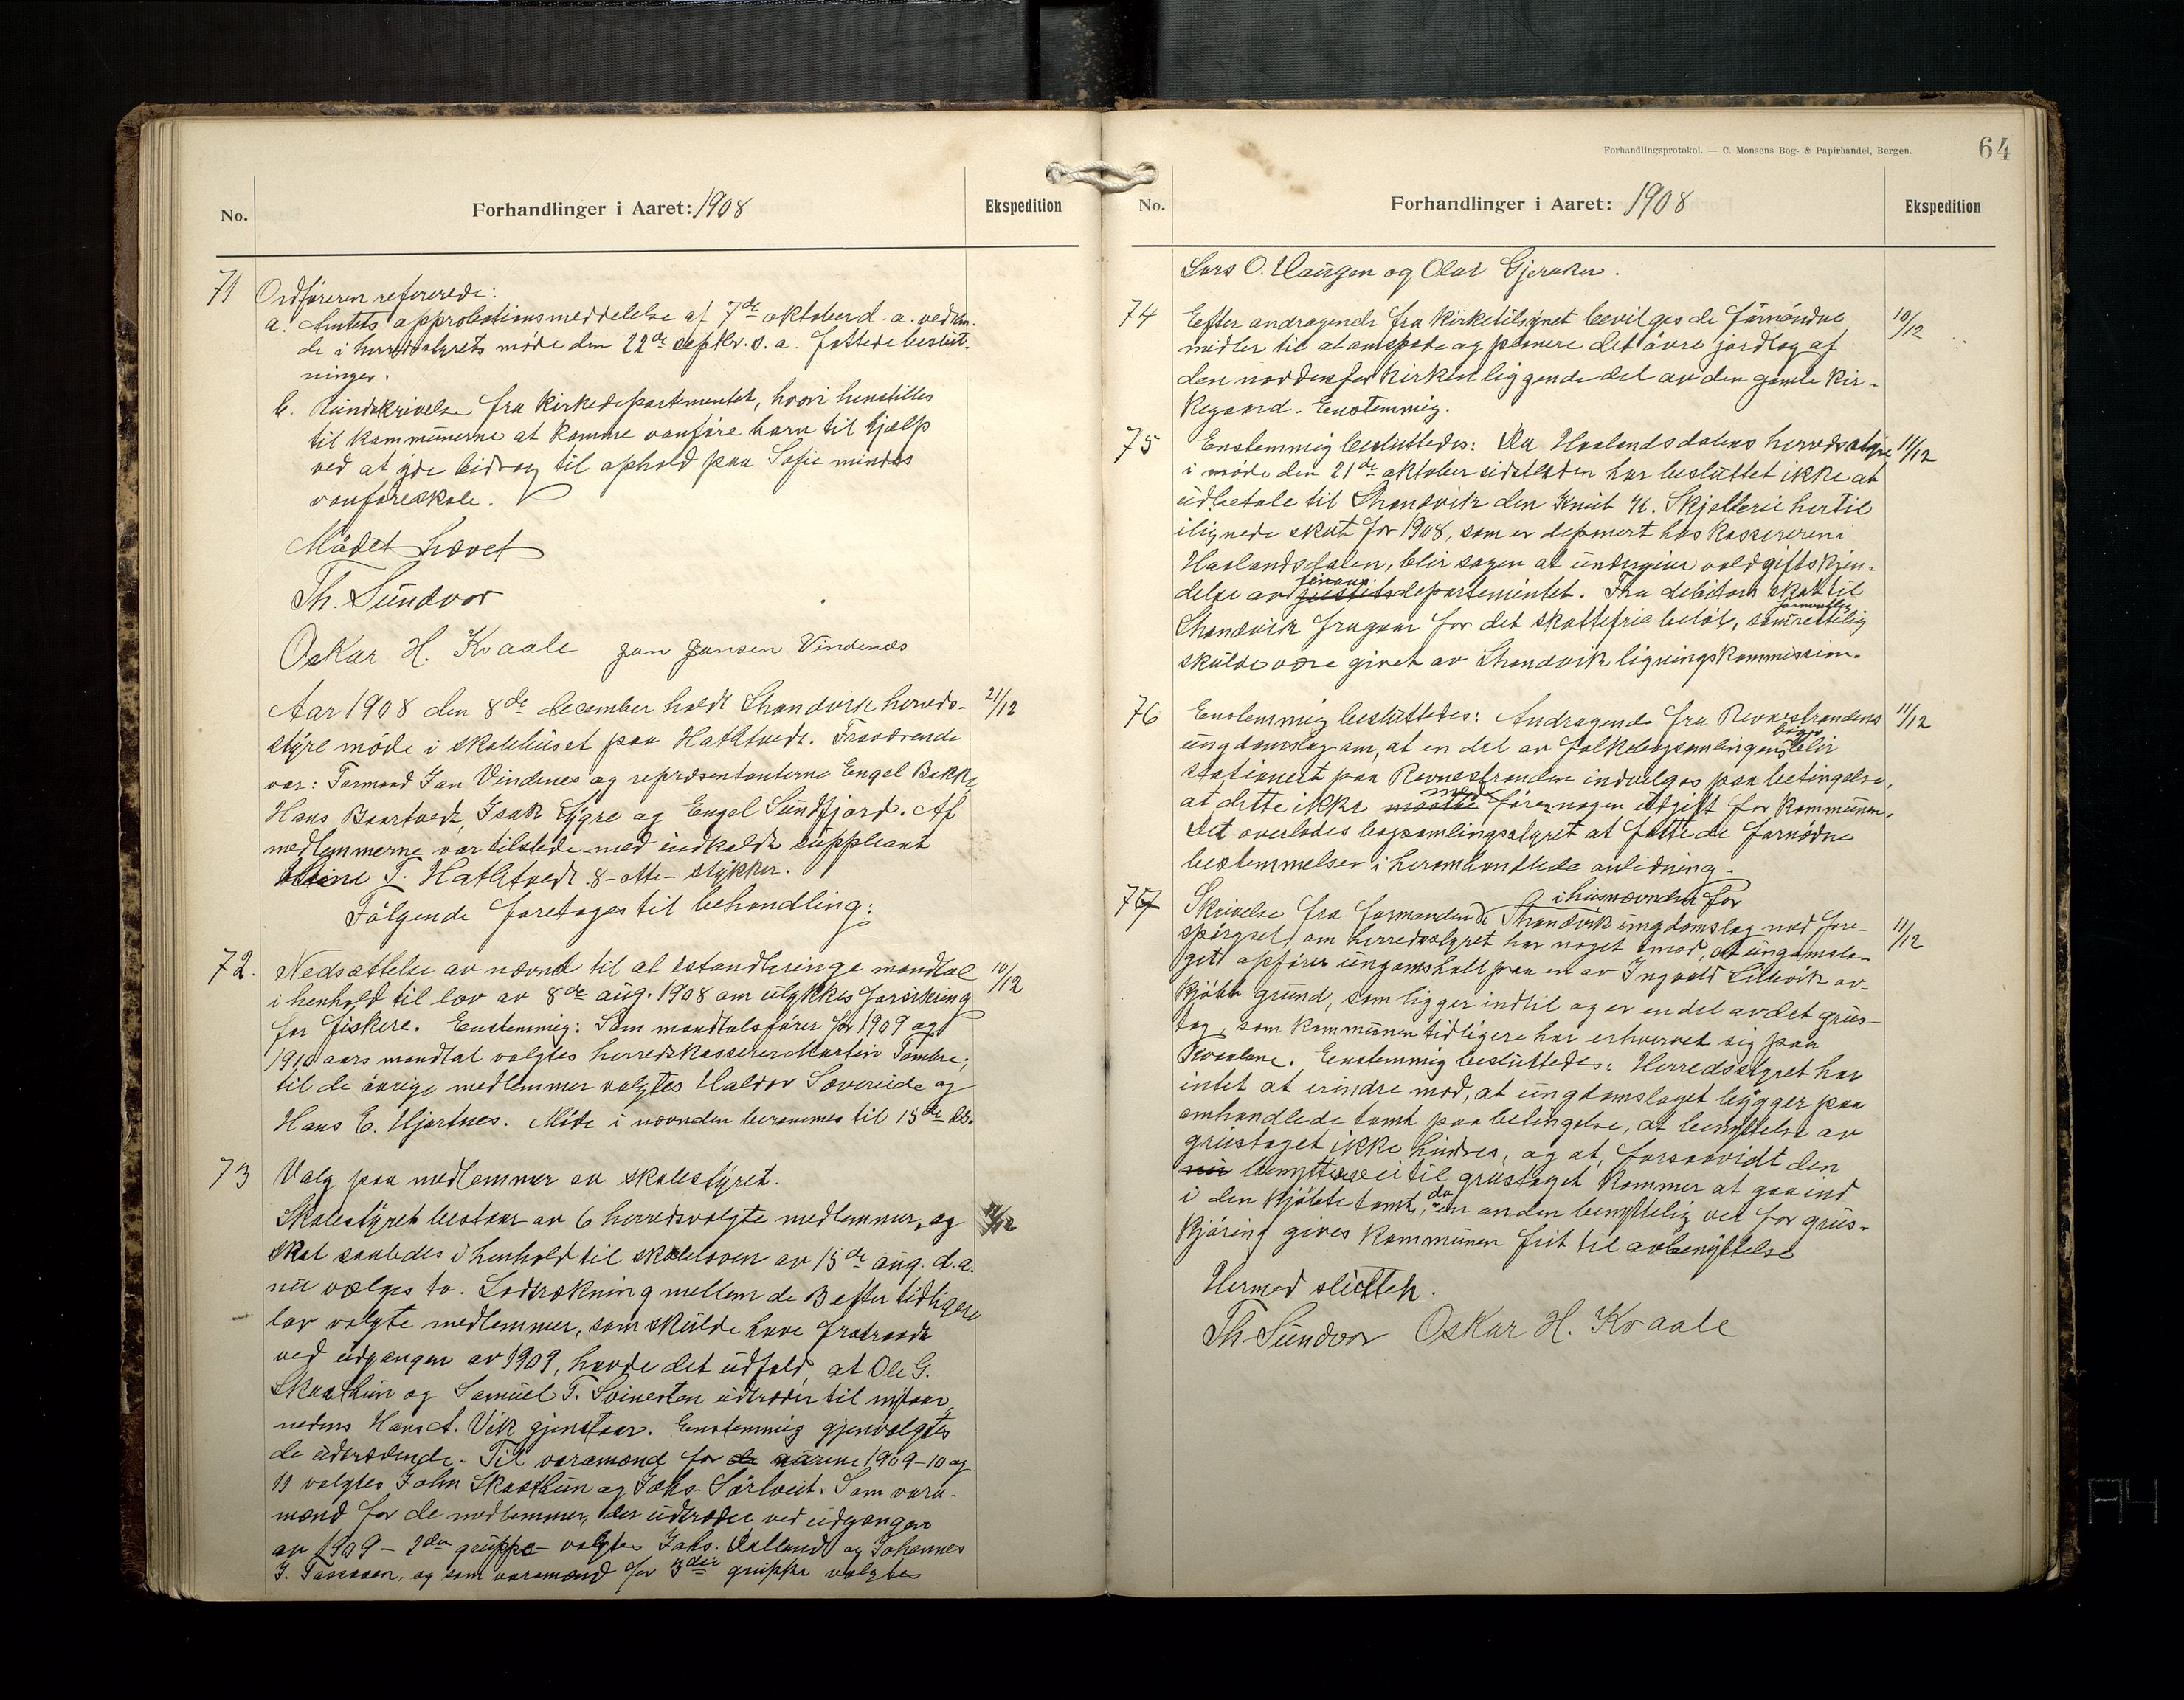 Forhandlinger i Aaret: 1908
No.
Ekspedition
71 Ordføreren refererede:
a. Amtets approbationsmeddelelse af 7de oktober d. a. vedkom-
de i herredsstyrets møde den 22de septbr. d. a. fattede beslut-
ninger.
b. Rundskrivelse fra Kirkedepartementet, hvori henstilles
til kommunerne at komme vanføre barn til hjælp
ved at yde bidrag til ophold paa Sofie mindes
vanføreskole.
Mødet hævet
Th. Sundvor
Oskar H. Kvaale Jan Jansen Vindenes
Aar 1908 den 8de december holdt Strandvik herreds- 21/12
styre møde i skolehuset paa Hathtvedt. Fraværende
var: Formand Jan Vindenes og repræsentanterne Engel Bakke,
Hans Baartvedt, Isak Lygre og Engel Sundfjord. Af
medlemmerne var tilstede med indkaldt suppleant
T. Hathtvedt 8 - otte - stykker.
Følgende foretoges til behandling:
72. Nedsættelse av nævnd til at istandbringe mandtal 10/12
i henhold til lov av 8de aug. 1908 om ulykkesforsikring
for fiskere. Enstemmig: Som mandtalsfører for 1909 og
1910 aars mandtal valgtes herredskasserer Martin Tombre;
til de øvrige medlemmer valgtes Haldor Sævereide og
Hans E. Hjartnes. Møde i nævnden berammes til 15de ds.
73 Valg paa medlemmer av skolestyret.
Skolestyret bestaar av 6 herredsvalgte medlemmer, og 11/12
skal saaledes i henhold til skoleloven av 15de aug. d. a.
nu vælges to. Lodtrækning mellem de 3 efter tidligere
lov valgte medlemmer, som skulde have fratraadt
ved udgangen av 1909, havde det udfald, at Ole G.
Skaathun og Samuel T. Svinestøn udtræder til nytaar,
medens Hans A. Vik gjenstaar. Enstemmig gjenvalgtes
de udtrædende. Til varamænd for de aarene 1909-10 og
11 valgtes John Skaathun og Johs. Sørtveit. Som vara-
mænd for de medlemmer, der udtræder ved udgangen
av 1909 - 2den gruppe - valgtes Johs. Dalland og Johannes
J. og som varamænd for 3die gruppe valgtes
Forhandlingsprotokol. — C. Monsens Bog- & Papirhandel, Bergen.
64
No.
Forhandlinger i Aaret: 1908
Ekspedition
Lars O. Haugen og Olai Gjeraker.
74 Efter andragende fra Kirketilsynet bevilges de fornødne 10/12
midler til at omspade og planere det øvre jordlag af
den nordenfor kirken liggende del av den gamle kir-
kegaard. Enstemmig.
75 Enstemmig besluttedes: Da Haalandsdalens herredsstyre 11/12
i møde den 21de oktober sidstleden har besluttet ikke at
udbetale til Strandvik den Knut N. Skjelterie hertil
ilignede skat for 1908, som er deponert hos kassereren i
Haalandsdalen, blir sagen at undergive voldgiftskjen-
delse av justitsdepartementet. Fra debitors skat til
finans
Strandvik fragaar for det skattefrie beløb, som rettelig
formentlig
skulde være givet av Strandvik ligningskommission.
76 Enstemmig besluttedes: Andragende fra Revnestrandens 11/12
ungdomslag om, at en del av folkebogsamlingens blir
bøger
stationert paa Revnestranden indvilges paa betingelse,
at dette ikke maatte føre nogen udgift for kommunen.
med
Det overlodes bogsamlingsstyret at fatte de fornødne
bestemmelser i heromhandlede anledning.
77 Skrivelse fra formanden i husnævnden for
Strandvik ungdomslag med fore- 11/12
spørgsel, om herredsstyret har noget imod, at ungdomsla-
get opfører ungdomshall paa en av Ingvald Lillevik av-
kjøbt grund, som ligger indtil og er en del av det grus-
tag, som kommunen tidligere har erhvervet sig paa
Enstemmig besluttedes: Herredsstyret har
intet at erindre mod, at ungdomslaget bygger paa
omhandlede tomt paa betingelse, at benyttelse av
grustaget ikke hindres, og at, forsaavidt den
nu benyttede vei til grustaget kommer at gaa ind
i den kjøbte tomt, da en anden benyttelig vei for grus-
kjøring gives kommunen frit til avbenyttelse
Hermed sluttet.
Th. Sundvor Oskar H. Kvaale